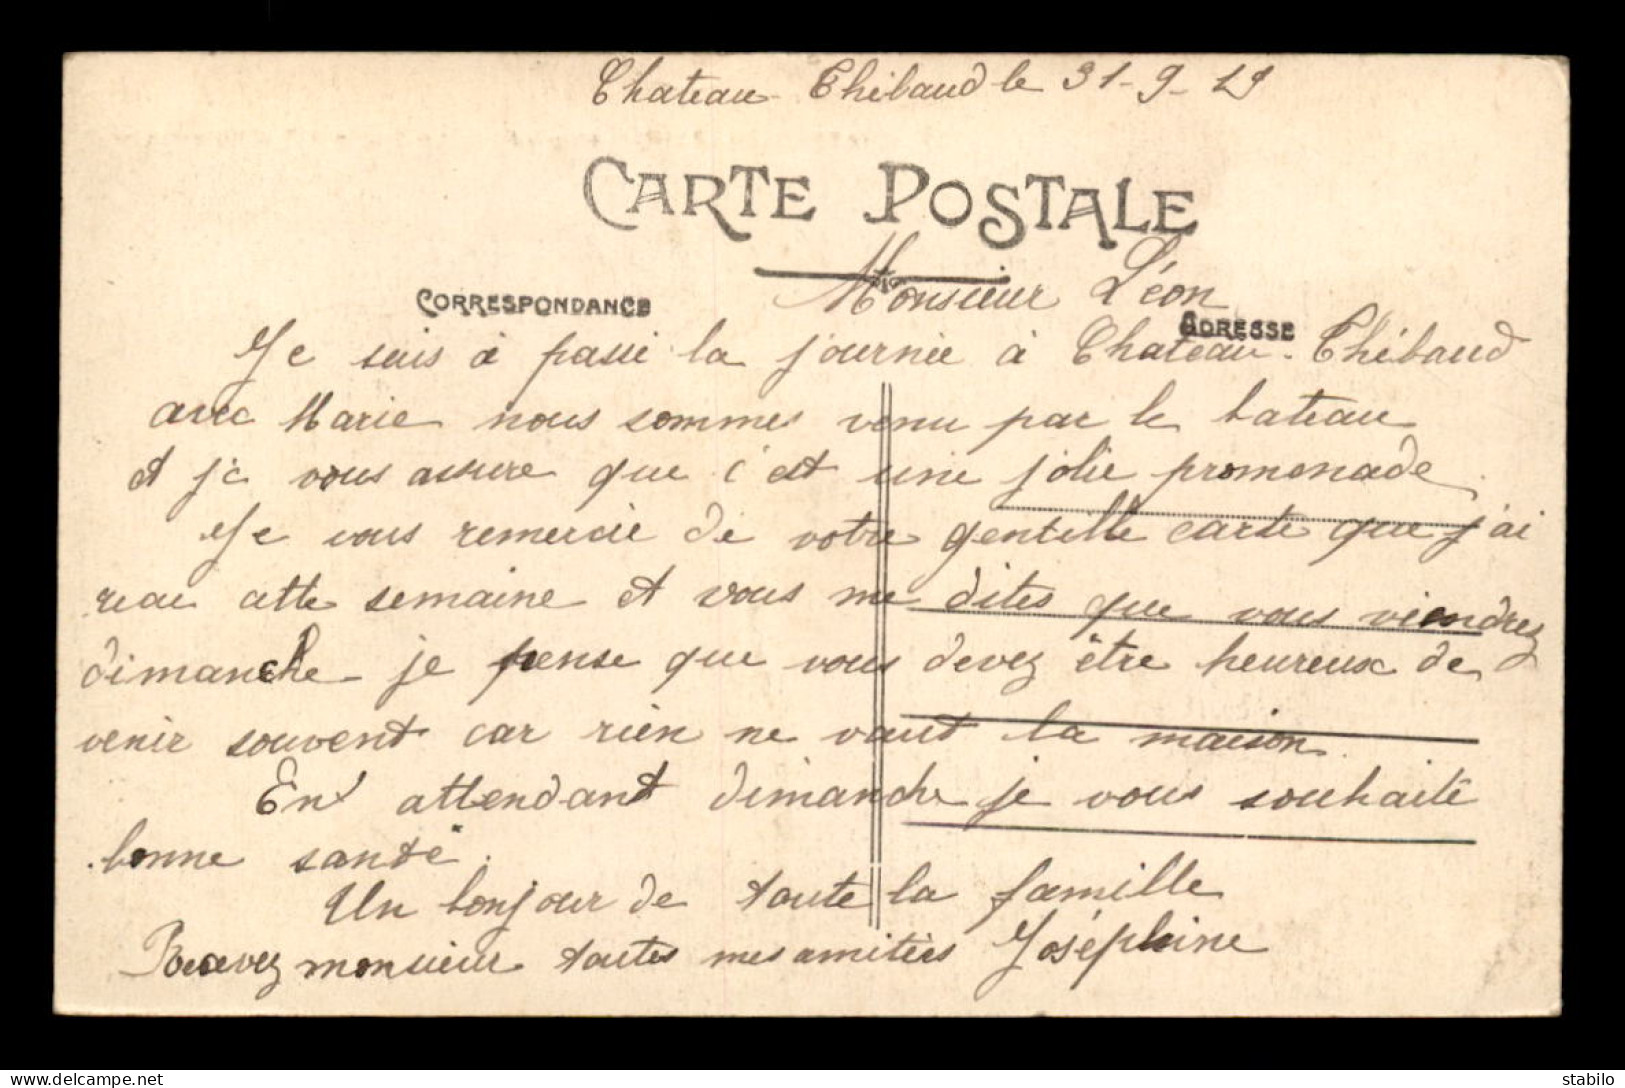 Chateau-Thibaud le 31-9-19
CARTE POSTALE
CORRESPONDANCE
Monsieur Léon
ADRESSE
Je suis à passé la journée à Chateau-Thibaud
avec Marie nous sommes venu par le bateau
et je vous assure que c'est une jolie promenade.
Je vous remercie de votre gentille carte que j'ai
recu cette semaine et vous me dites que vous viendrez
dimanche je pense que vous devez être heureux de
venir souvent car rien ne vaut la maison.
En attendant dimanche je vous souhaite
bonne santé.
Un bonjour de toute la famille
Recevez monsieur toutes mes amitiés Joséphine
stabilo